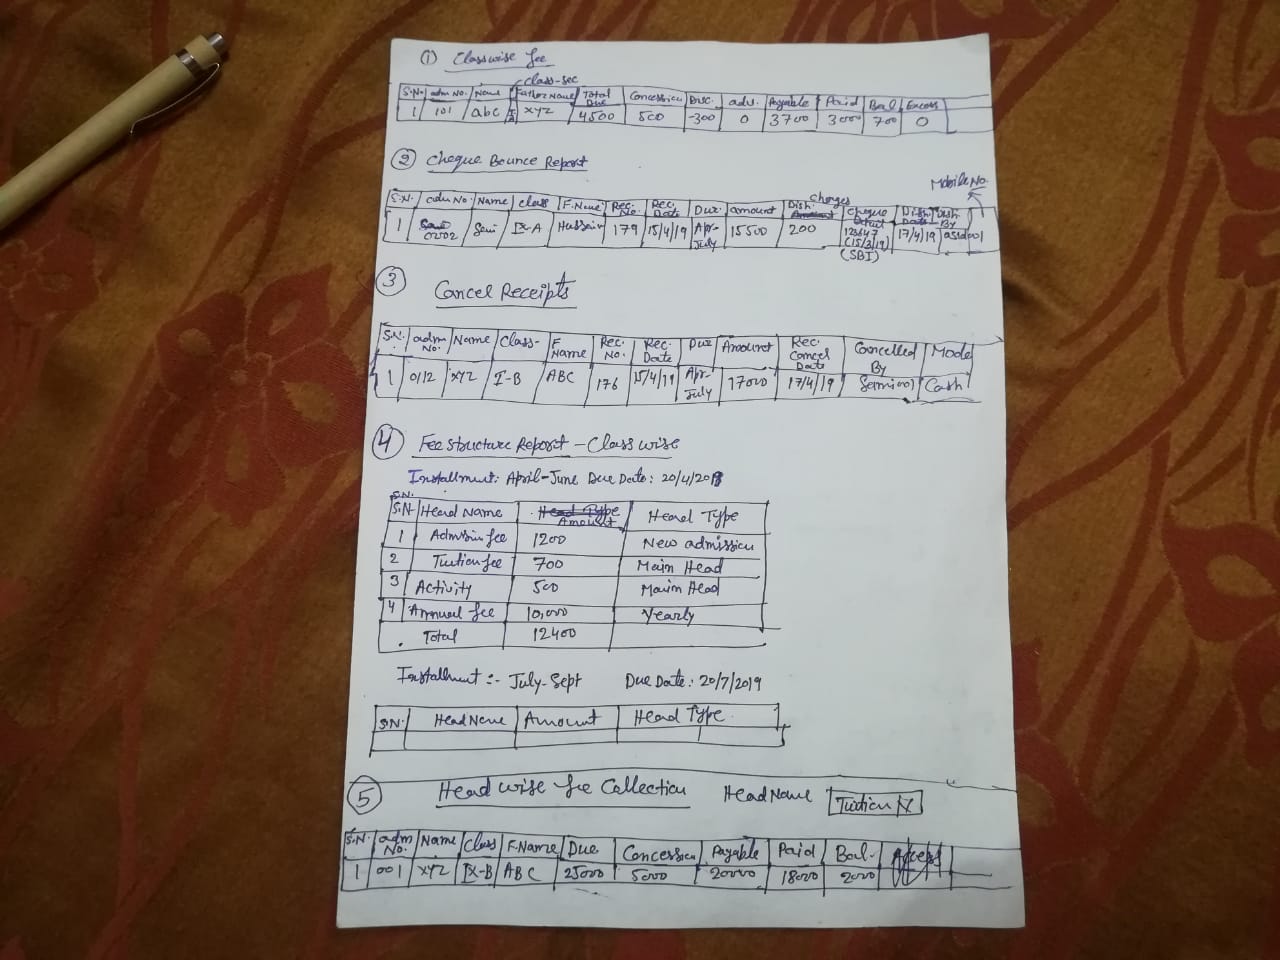 ① Classwise fee
Class-sec
S.No. adm No. Name Father Name Total Due Concession Disc. adv. Payable Paid Bal Excess
1 101 abc XYZ 4500 500 -300 0 3700 3000 700 0
② Cheque Bounce Report
Mobile No.
S.N. adm No. Name Class F.Name Rec. No. Rec. Date Due amount Dish. Charges Cheque Detail Dish. Date Dish. By
1 0202 IX-A Hussain 179 15/4/19 Apr-July 15500 200 (15/3/19) (SBI) 17/4/19
③ Cancel Receipts
S.N. adm No. Name Class- F Name Rec. No. Rec. Date Due Amount Rec. Cancel Date Cancelled By Mode
1 0112 XYZ I-B ABC 176 15/4/19 Apr-July 17000 17/4/19 Cash
④ Fee structure Report - Class wise
Installment: April-June Due Date: 20/4/2019
S.N.
S.N Head Name Amount Head Type
1 Admissin fee 1200 New admission
2 Tuition fee 700 Main Head
3 Activity 500 Main Head
4 Annual fee 10,000 Yearly
Total 12400
Installment :- July-Sept Due Date: 20/7/2019
S.N. Head Name Amount Head Type
⑤ Head wise fee Collection Head Name Tuition
S.N. adm No. Name Class F.Name Due Concession Payable Paid Bal-
1 001 XYZ IX-B ABC 25000 5000 20000 18000 2000